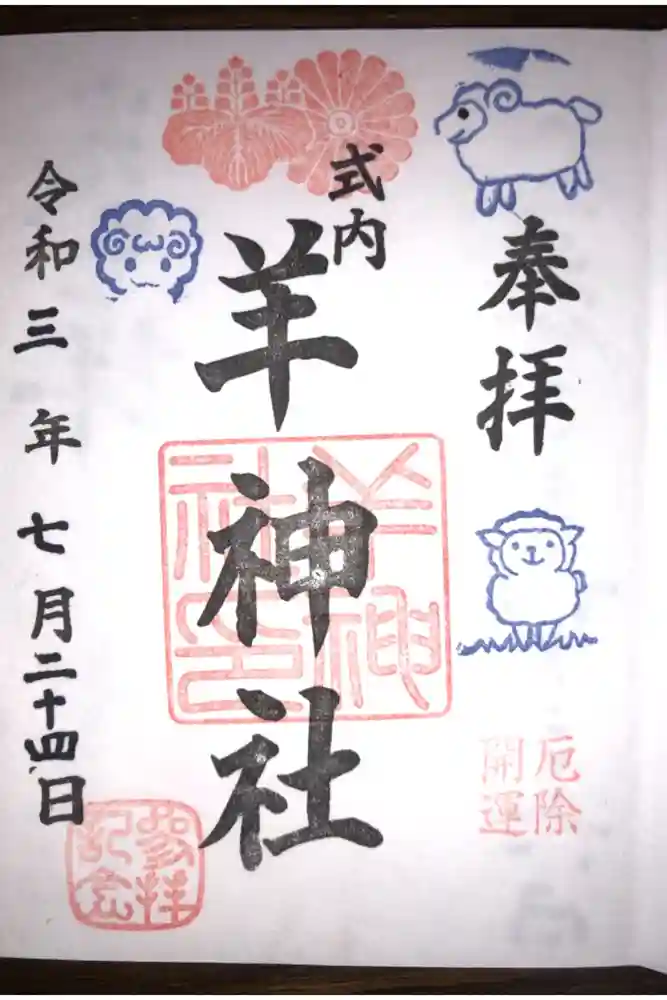 奉拝
厄除
開運
式内
羊神社
羊神社印
令和三年七月二十四日
参拝
記念